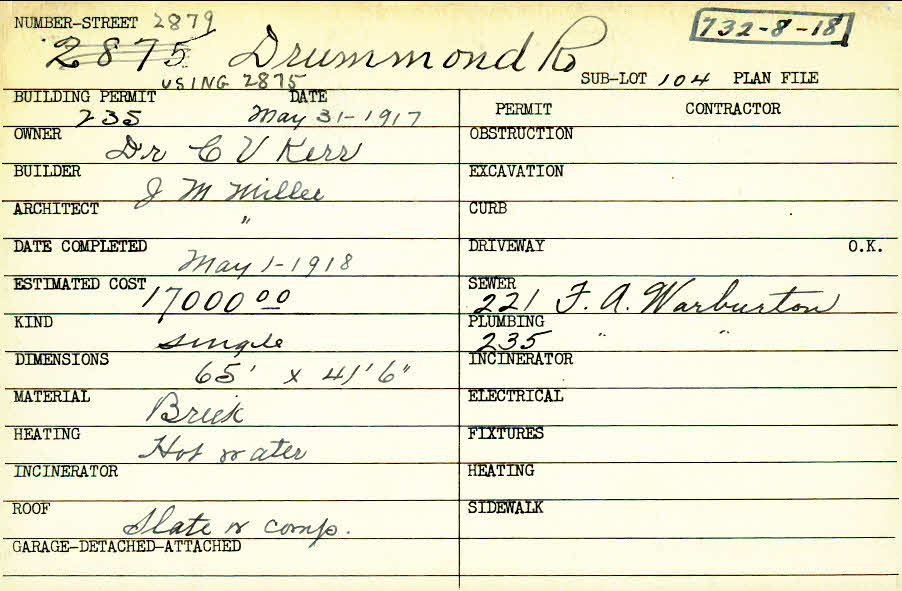 NUMBER-STREET 2879
732-8-18
2875 Drummond R
USING 2875
SUB-LOT 104 PLAN FILE
BUILDING PERMIT DATE
235 May 31-1917
PERMIT CONTRACTOR
OWNER Dr C V Kerr
OBSTRUCTION
BUILDER J M Miller
EXCAVATION
ARCHITECT "
CURB
DATE COMPLETED May 1-1918
DRIVEWAY O.K.
ESTIMATED COST 17000 00
SEWER
221 F. A. Warburton
KIND single
PLUMBING
235 " "
DIMENSIONS 65' x 41'6"
INCINERATOR
MATERIAL Brick
ELECTRICAL
HEATING Hot water
FIXTURES
INCINERATOR
HEATING
ROOF Slate or comp.
SIDEWALK
GARAGE-DETACHED-ATTACHED